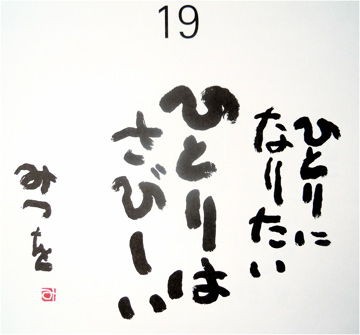 19
ひとりに
なりたい
ひとりは
さびしい
みつを